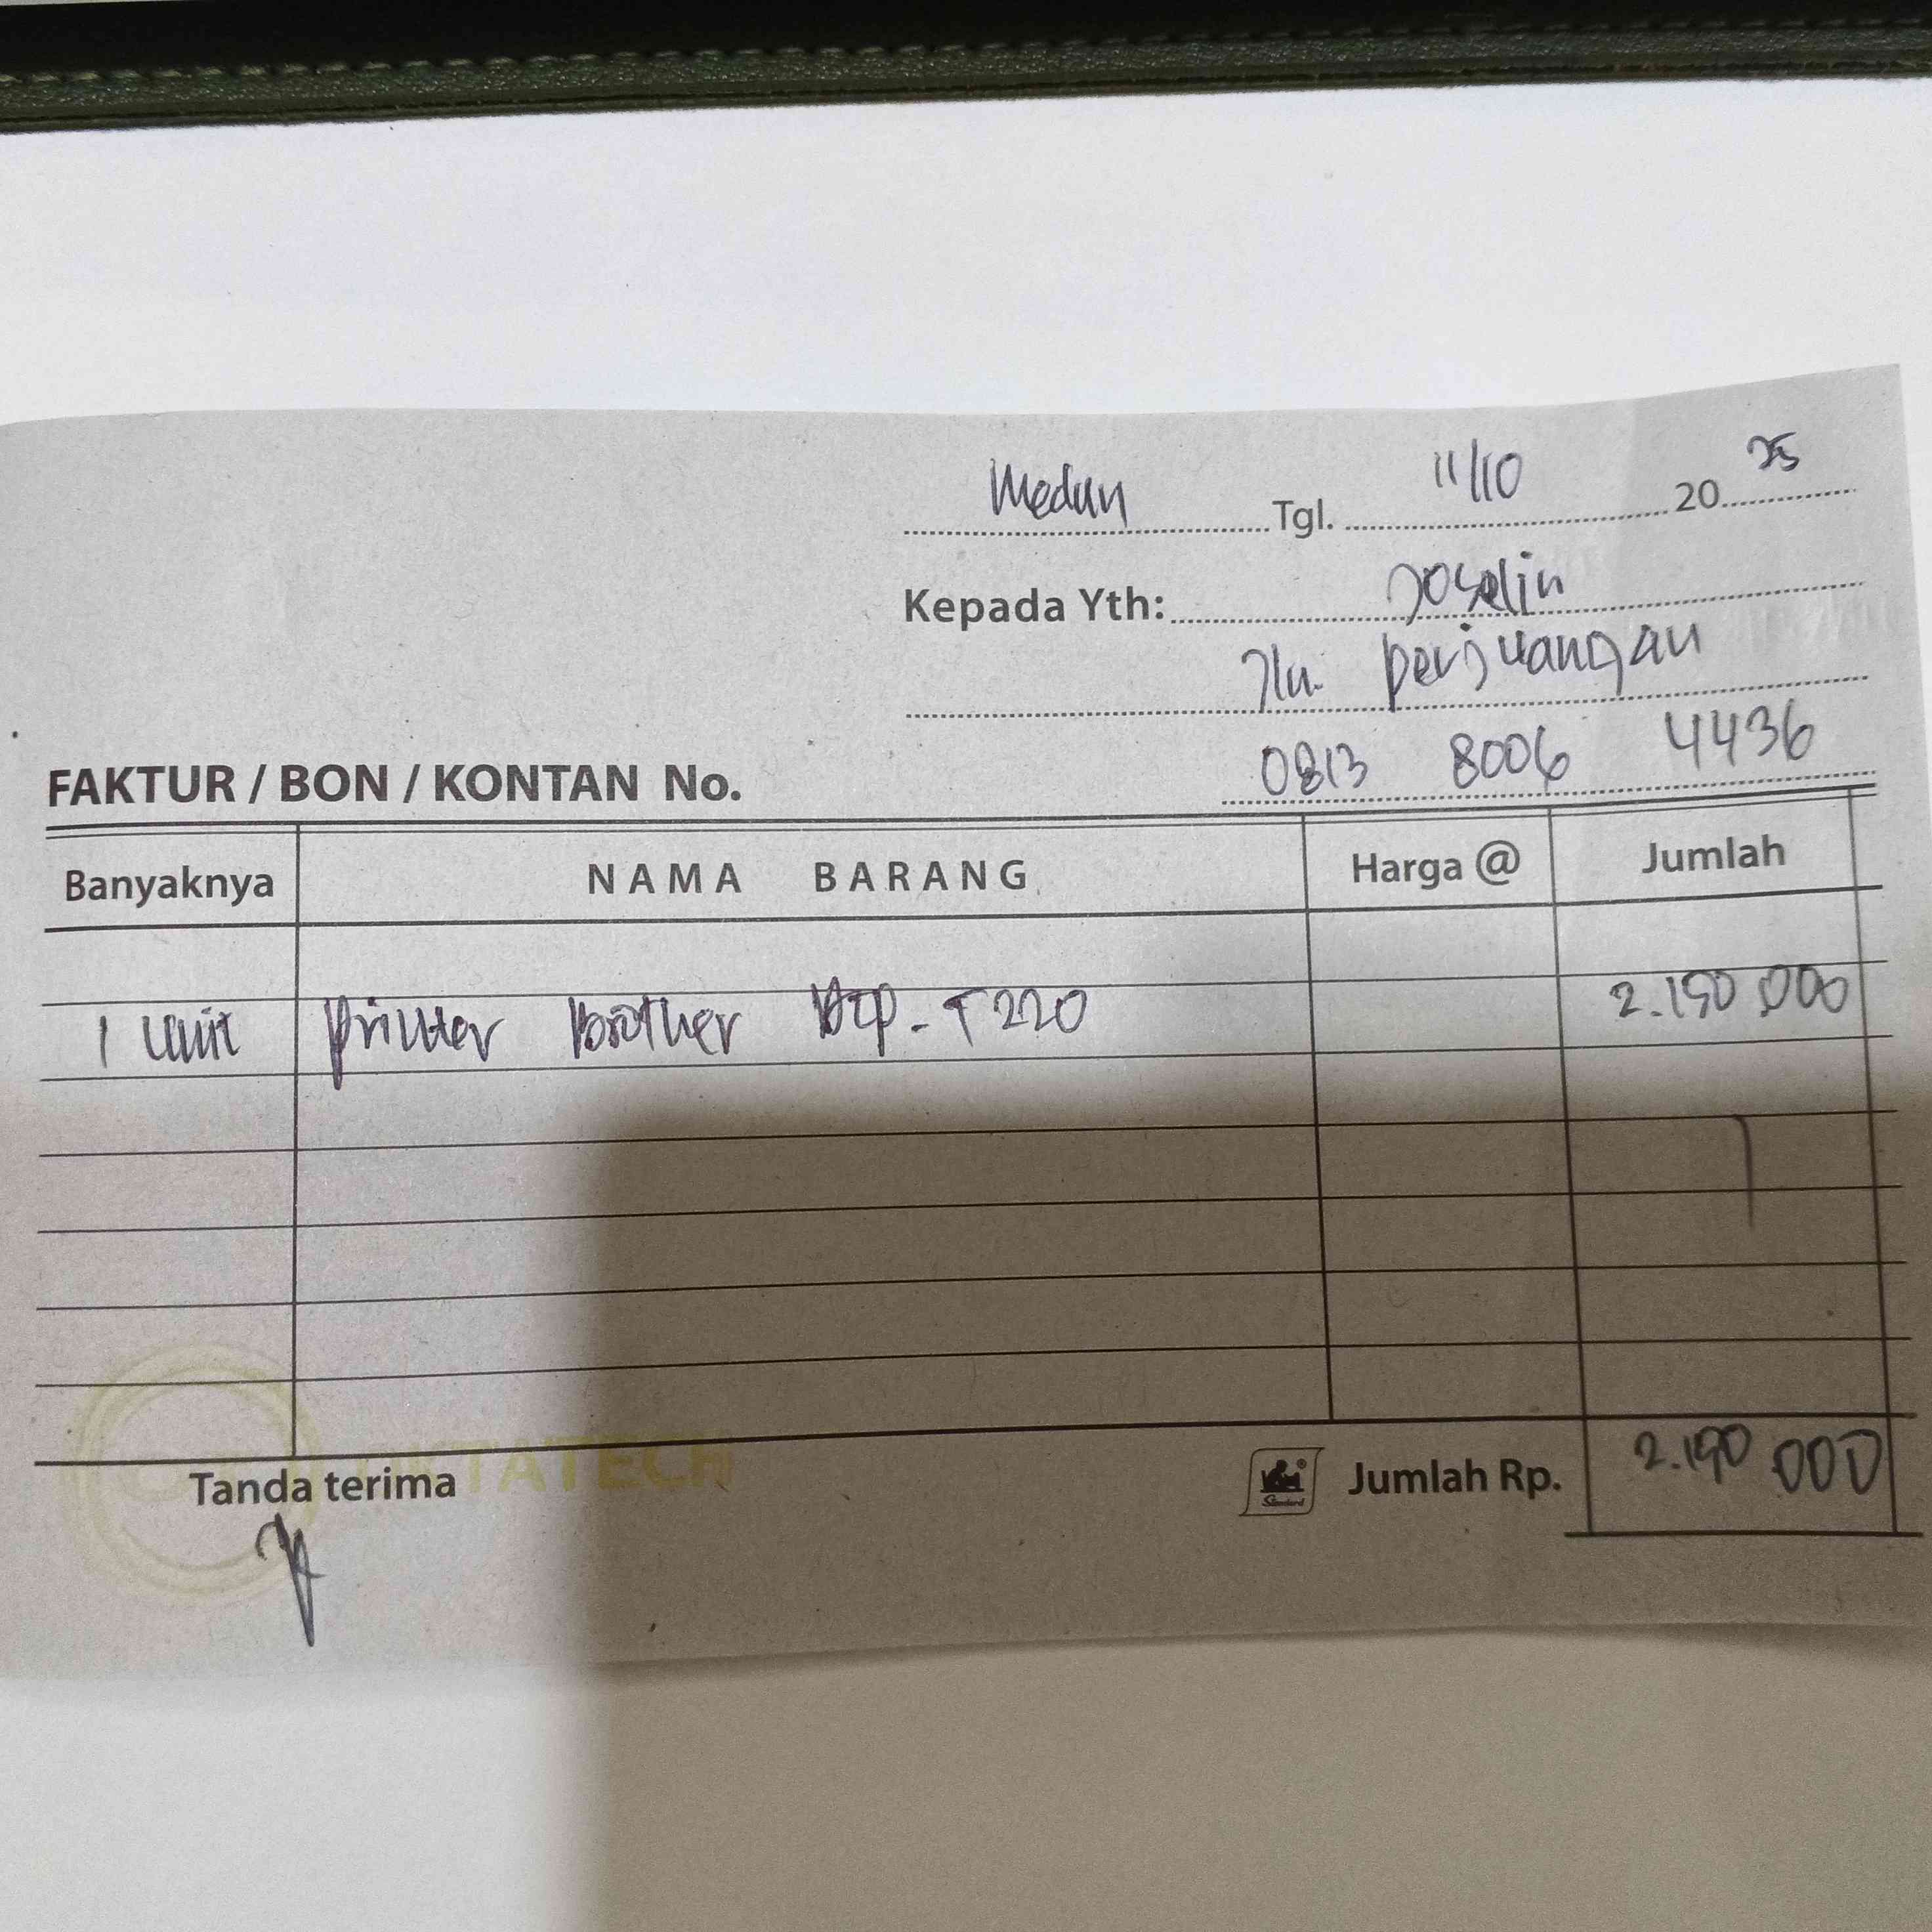 Medan Tgl. 11/10 2025
Kepada Yth: Joselin
Jln. perjuangan
0813 8006 4436
FAKTUR / BON / KONTAN No.
Banyaknya NAMA BARANG Harga @ Jumlah
1 unit printer brother DCP-T220 2.190.000
Tanda terima Jumlah Rp. 2.190 000
Standard